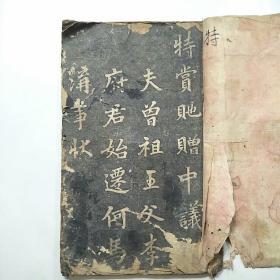 特賞貤贈中議
夫曾祖王父李
府君始遷何馬
溝事狀
特